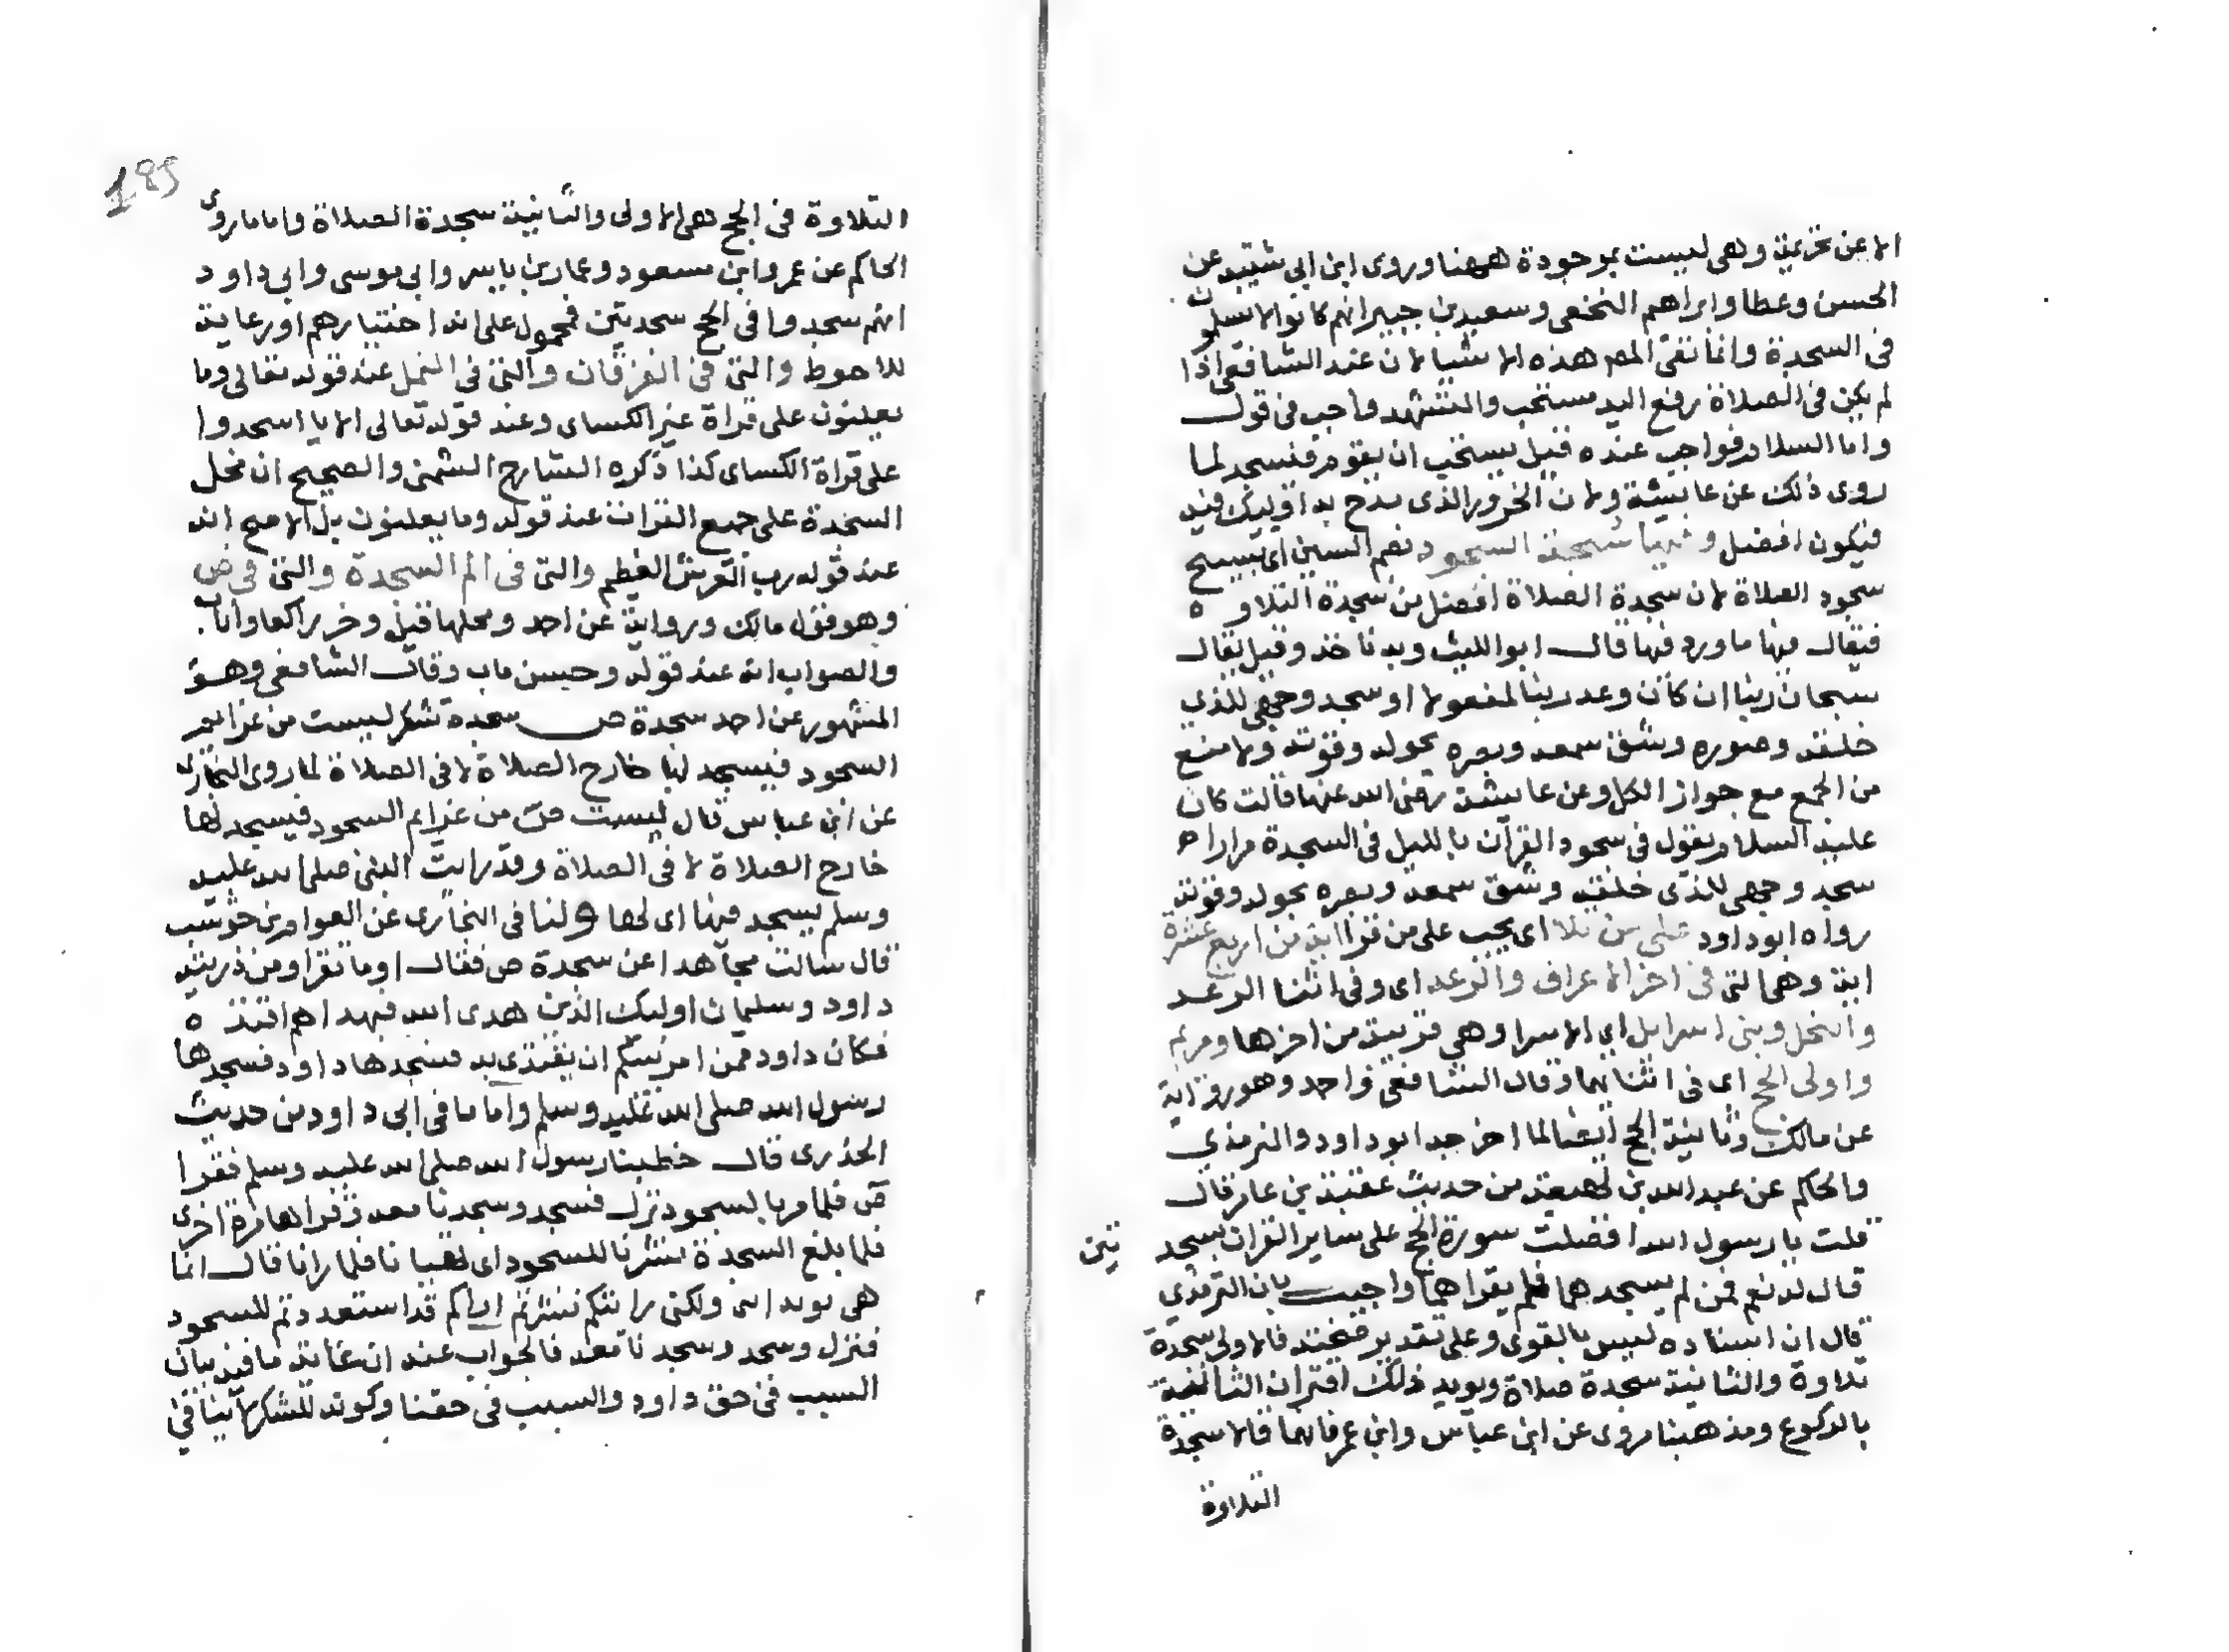 الا عن تحريمة وهي ليست بموجودة ههنا وروى ابن ابي شيبه عن
الحسن وعطا وابراهم النخعى وسعيد بن جبير انهم كانوا لا يسلمون
فى السجدة وانما نفى المص هذه الاشيا لان عند الشافعى اذا
لم يكن فى الصلاة رفع اليد مستحب والتشهد واجب فى قول
واما السلام فواجب عنده قيل يستحب ان يقوم فيسجد لما
روى ذلك عن عايشة ولان الخرور الذى مدح به اوليك فيه
فيكون افضل وفيها سبحة السجود بضم السين اى تسبيح
سجود الصلاة لان سجدة الصلاة افضل من سجدة التلاوة
فيقال فيها ما ورد فيها قال ابو الليث وبه ناخذ وقيل يقال
سبحان ربنا ان كان وعد ربنا لمفعولا او سجد وجهى للذي
خلقه وصوره وشق سمعه وبصره بحوله وقوته ولا منع
من الجمع مع جواز الكل وعن عايشة رضى الله عنها قالت كان
عليه السلام يقول فى سجود القرآن بالليل فى السجدة مرارا
سجد وجهى للذى خلقه وشق سمعه وبصره بحوله وقوته
رواه ابو داود على من تلا اى يجب على من قرا اية من اربع عشرة
اية وهى التى فى اخر الاعراف والرعد اى وفى اثنا الرعد
والنحل وبنى اسرايل اى الاسرا وهي قريبة من اخرها ومريم
واولى الحج اى فى اثنايهما وقال الشافعى واحد وهو رواية
عن مالك وثانية الحج ايضا لما اخرجه ابو داود والترمذي
والحاكم عن عبد الله بن لهيعة من حديث عقبة بن عامر قال
قلت يا رسول الله افضلت سورة الحج على ساير القران بسجد تين
قال له نعم فمن لم يسجدهما فلم يقراهما واجيب بان الترمذي
قال ان اسناده ليس بالقوى وعلى تقدير صحته فالاولى سجدة
تلاوة والثانية سجدة صلاة ويويد ذلك اقتران الثانية
بالركوع ومذهبنا مروى عن ابن عباس وابن عمر فانهما قالا سجدة
التلاوة
185
التلاوة فى الحج هى الاولى والثانية سجدة الصلاة واما ما روى
الحاكم عن عمر وابن مسعود وعمار بن ياسر وابي موسى وابي داود
انهم سجدوا فى الحج سجدتين فمحمول على انه اختيارهم او رعاية
للاحوط والتى فى الفرقان والتى فى النمل عند قوله تعالى وما
يعلنون على قراة غير الكساى وعند قوله تعالى الا يا اسجدوا
على قراة الكساى كذا ذكره الشارح الشمنى والصحيح ان محل
السجدة على جميع القرات عند قوله وما يعلنون بل الاصح انه
عند قوله رب العرش العظيم والتى فى الم السجدة والتى فى ص
وهو قول مالك ورواية عن احد ومحلها قيل وخر راكعا واناب
والصواب انه عند قوله وحسن ماب وقال الشافعى وهو
المشهور عن احد سجدة ص سجدة شكر ليست من عزايم
السجود فيسجد لها خارج الصلاة لا فى الصلاة لما روى البخارى
عن ابن عباس قال ليست ص من عزايم السجود فيسجد لها
خارج الصلاة لا فى الصلاة وقد رايت النبى صلى الله عليه
وسلم يسجد فيها اى لها ولنا فى البخارى عن العوام بن حوشب
قال سالت مجاهدا عن سجدة ص فقال اوما تقرا ومن ذريته
داود وسليمان اوليك الذين هدى الله فبهداهم اقتده
فكان داود ممن امر نبيكم ان يقتدى به فسجدها داود فسجدها
رسول الله صلى الله عليه وسلم واما ما فى ابى داود من حديث
الخدرى قال خطبنا رسول الله صلى الله عليه وسلم فقرا
ص فلما مر بالسجود نزل فسجد وسجدنا معه وقراها مرة اخرى
فلما بلغ السجدة تشزنا للسجود اى تهيانا فلما رانا قال انما
هى توبة نبى ولكنى رايتكم تشزنتم اراكم قد استعددتم للسجود
فنزل وسجد وسجدنا معه فالجواب عنه ان غاية ما فيه بيان
السبب فى حق داود والسبب فى حقنا وكونه للشكر لا ينافى